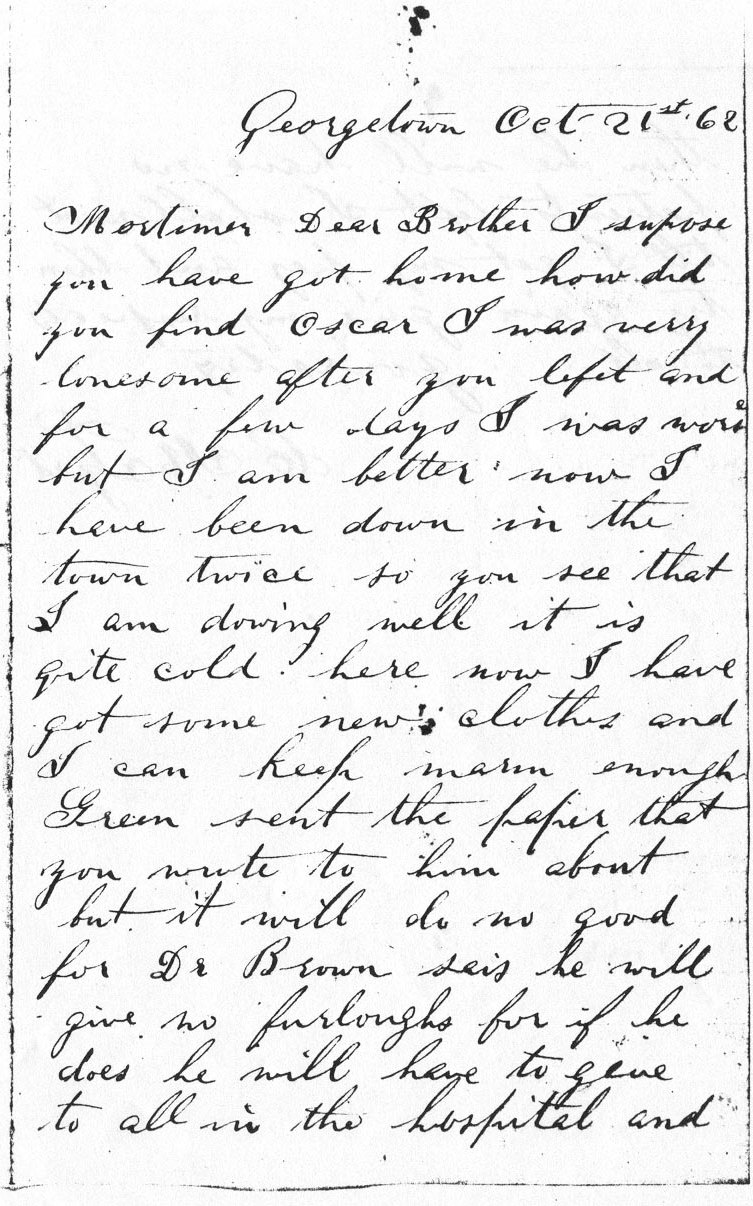 Georgetown Oct 21st. 62
Mortimer Dear Brother I supose
you have got home how did
you find Oscar I was verry
lonesome after you lefet and
for a few days I was worse
but I am better now I
have been down in the
town twice so you see that
I am dowing well it is
qite cold here now I have
got some new clothes and
I can keep marm enough
Green sent the paper that
you wrote to him about
but it will do no good
for Dr Brown sais he will
give no furloughs for if he
does he will have to geive
to all in the hospital and